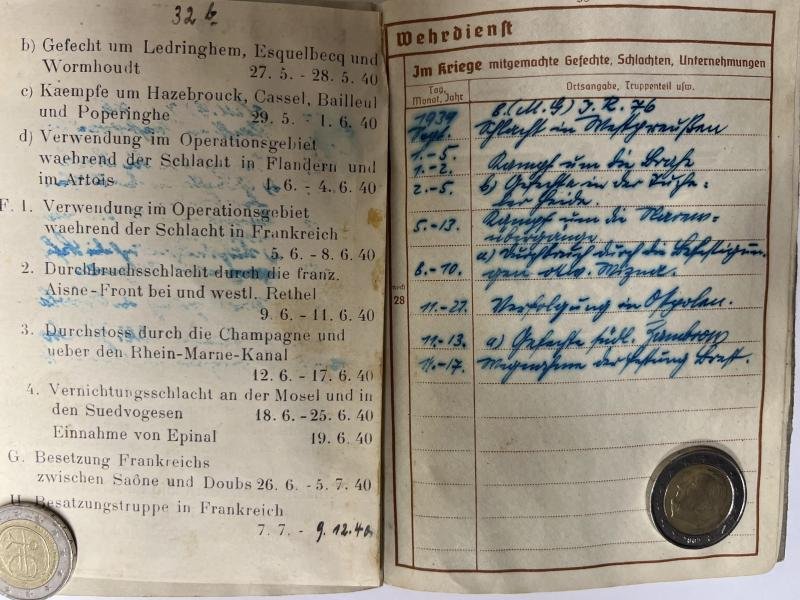 32 b
b) Gefecht um Ledringhem, Esquelbecq und
Wormhoudt 27. 5. - 28. 5. 40
c) Kaempfe um Hazebrouck, Cassel, Bailleul
und Poperinghe 29. 5. - 1. 6. 40
d) Verwendung im Operationsgebiet
waehrend der Schlacht in Flandern und
im Artois 1. 6. - 4. 6. 40
F. 1. Verwendung im Operationsgebiet
waehrend der Schlacht in Frankreich
5. 6. - 8. 6. 40
2. Durchbruchsschlacht durch die franz.
Aisne-Front bei und westl. Rethel
9. 6. - 11. 6. 40
3. Durchstoss durch die Champagne und
ueber den Rhein-Marne-Kanal
12. 6. - 17. 6. 40
4. Vernichtungsschlacht an der Mosel und in
den Suedvogesen 18. 6. - 25. 6. 40
Einnahme von Epinal 19. 6. 40
G. Besetzung Frankreichs
zwischen Saône und Doubs 26. 6. - 5. 7. 40
H. Besatzungstruppe in Frankreich
7. 7. - 9. 12. 40
Wehrdienst
Im Kriege mitgemachte Gefechte, Schlachten, Unternehmungen
Tag, Monat, Jahr
Ortsangabe, Truppenteil usw.
8. (M.G) I. R. 76
1939 Schlacht in Westpreußen
Sept.
1.-5.
1.-2. Kampf um die Brahe
2.-5. b) Gefechte in der Tuche-
ler Heide.
5.-13. Kampf um die Narew-
übergänge
8.-10. a) Durchbruch durch die Befestigun-
gen östl. Wizna.
noch
28
11.-27. Verfolgung in Ostpolen.
11.-13. a) Gefechte südl. Zambrow
14.-17. Wegnahme der Festung Brest.